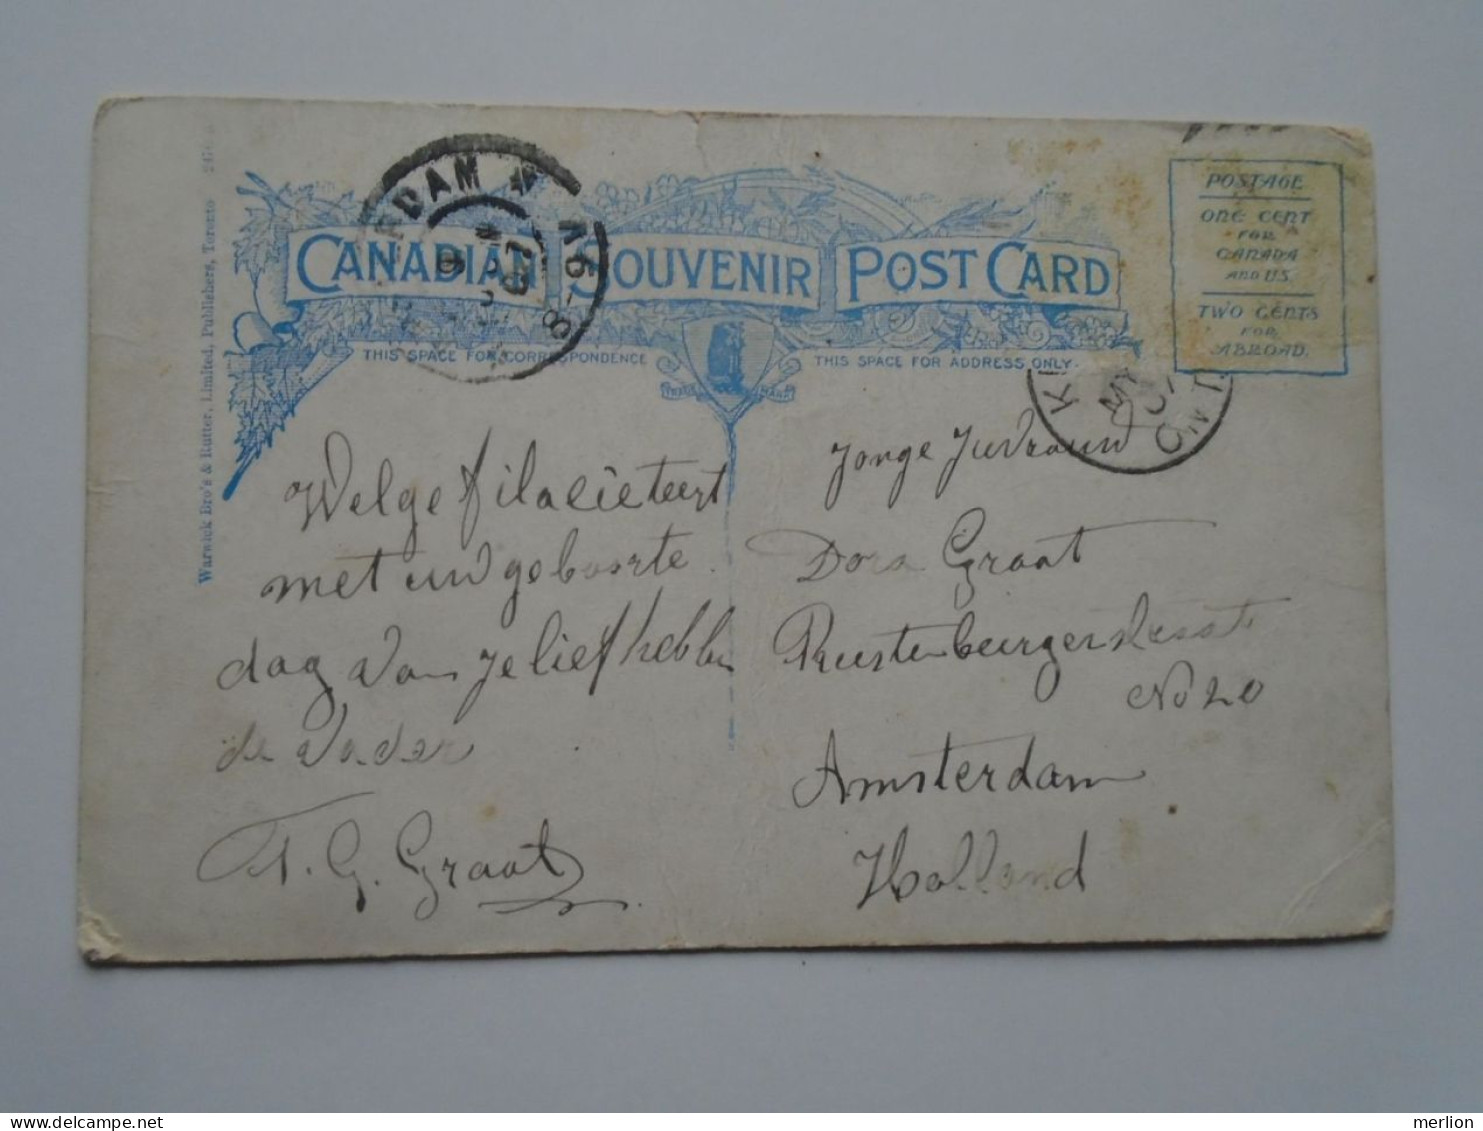 CANADIAN SOUVENIR POST CARD
THIS SPACE FOR CORRESPONDENCE
THIS SPACE FOR ADDRESS ONLY.
TRADE MARK
POSTAGE
ONE CENT
FOR
CANADA
AND U.S.
TWO CENTS
FOR
ABROAD.
Warwick Bro's & Rutter, Limited, Publishers, Toronto
RDAM
8-9 V
07
MY
07
ONT
Welgefilacieteert
met uw geboorte
dag van je liefhebben
de Vader
F. G. Graat
Jonge Juvrauw
Dora Graat
Rustenburgerstraat
No 20
Amsterdam
Holland
merlion